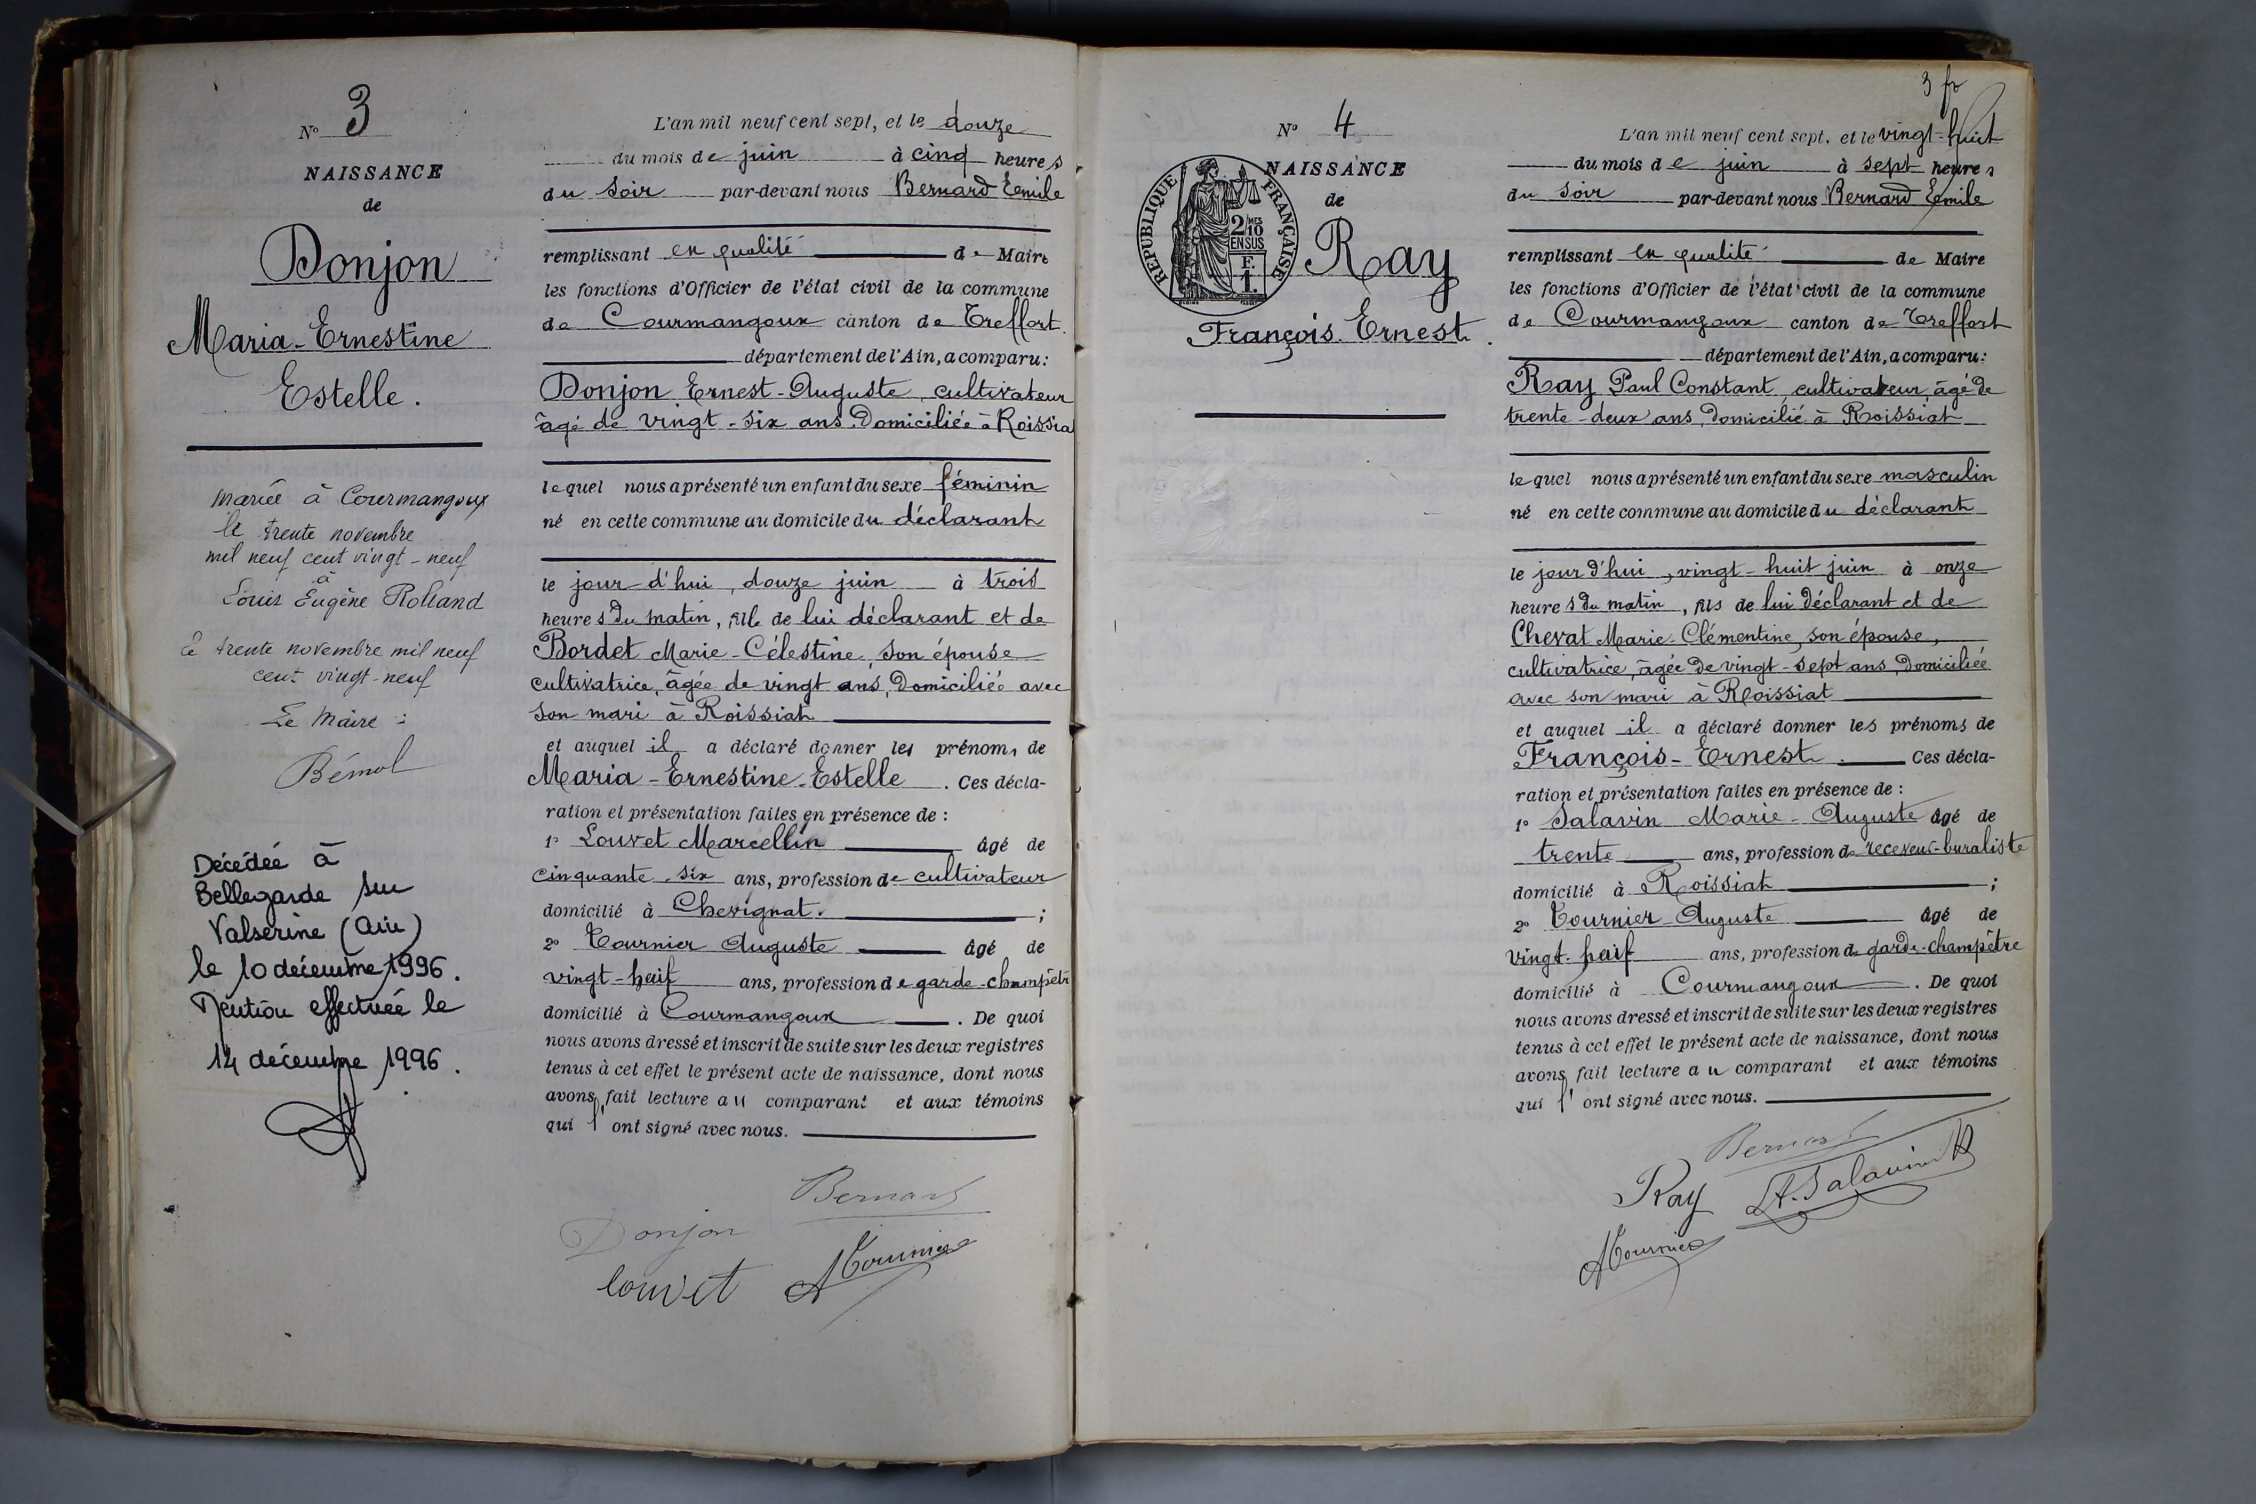 N° 3
NAISSANCE
de
Donjon
Maria-Ernestine
Estelle.
Mariée à Courmangoux
le trente novembre
mil neuf cent vingt-neuf
à
Louis Eugène Rolland
Le trente novembre mil neuf
cent vingt-neuf
Le Maire :
Décédée à
Bellegarde sur
Valserine (Ain)
le 10 décembre 1996.
Mention effectuée le
14 décembre 1996.
L'an mil neuf cent sept, et le douze
du mois de juin à cinq heures
du soir par-devant nous Bernard Emile
remplissant en qualité de Maire
les fonctions d'Officier de l'état civil de la commune
de Courmangoux canton de Treffort.
département de l'Ain, a comparu:
Donjon Ernest-Auguste, cultivateur
âgé de vingt-six ans, Domiciliée à Roissia
lequel nous a présenté un enfant du sexe féminin
né en cette commune au domicile du déclarant
le jour d'hui, douze juin à trois
heures du matin, fille de lui déclarant et de
Bordet Marie-Célestine, son épouse
cultivatrice, âgée de vingt ans, Domiciliée avec
son mari à Roissiat
et auquel il a déclaré donner les prénoms de
Maria-Ernestine-Estelle. Ces décla-
ration et présentation faites en présence de :
1° Louvet Marcellin âgé de
cinquante-six ans, profession de cultivateur
domicilié à Chevignat. ;
2° Tournier Auguste âgé de
vingt-huit ans, profession de garde-champêtr
domicilié à Courmangoux. De quoi
nous avons dressé et inscrit de suite sur les deux registres
tenus à cet effet le présent acte de naissance, dont nous
avons fait lecture au comparant et aux témoins
qui l'ont signé avec nous.
Bernard
Donjon
louvet ATournier
3 fr
N° 4
NAISSANCE
de
RÉPUBLIQUE FRANÇAISE
2/10 MES
EN SUS
F.
1.
Ray
François-Ernest.
L'an mil neuf cent sept, et le vingt-huit
du mois de juin à sept heures
du soir par-devant nous Bernard Emile
remplissant en qualité de Maire
les fonctions d'Officier de l'état civil de la commune
de Courmangoux canton de Treffort
département de l'Ain, a comparu:
Ray Paul Constant, cultivateur, âgé de
trente-deux ans, domicilié à Roissiat
lequel nous a présenté un enfant du sexe masculin
né en cette commune au domicile du déclarant
le jour d'hui, vingt-huit juin à onze
heures du matin, fils de lui déclarant et de
Chevat Marie-Clémentine, son épouse,
cultivatrice, âgée de vingt-sept ans, Domiciliée
avec son mari à Roissiat
et auquel il a déclaré donner les prénoms de
François-Ernest. Ces décla-
ration et présentation faites en présence de :
1° Salavin Marie-Auguste âgé de
trente ans, profession de receveur-buraliste
domicilié à Roissiat ;
2° Tournier Auguste âgé de
vingt-huit ans, profession de garde-champêtre
domicilié à Courmangoux. De quoi
nous avons dressé et inscrit de suite sur les deux registres
tenus à cet effet le présent acte de naissance, dont nous
avons fait lecture au comparant et aux témoins
qui l'ont signé avec nous.
Bernard
Ray A. Salavin
ATournier